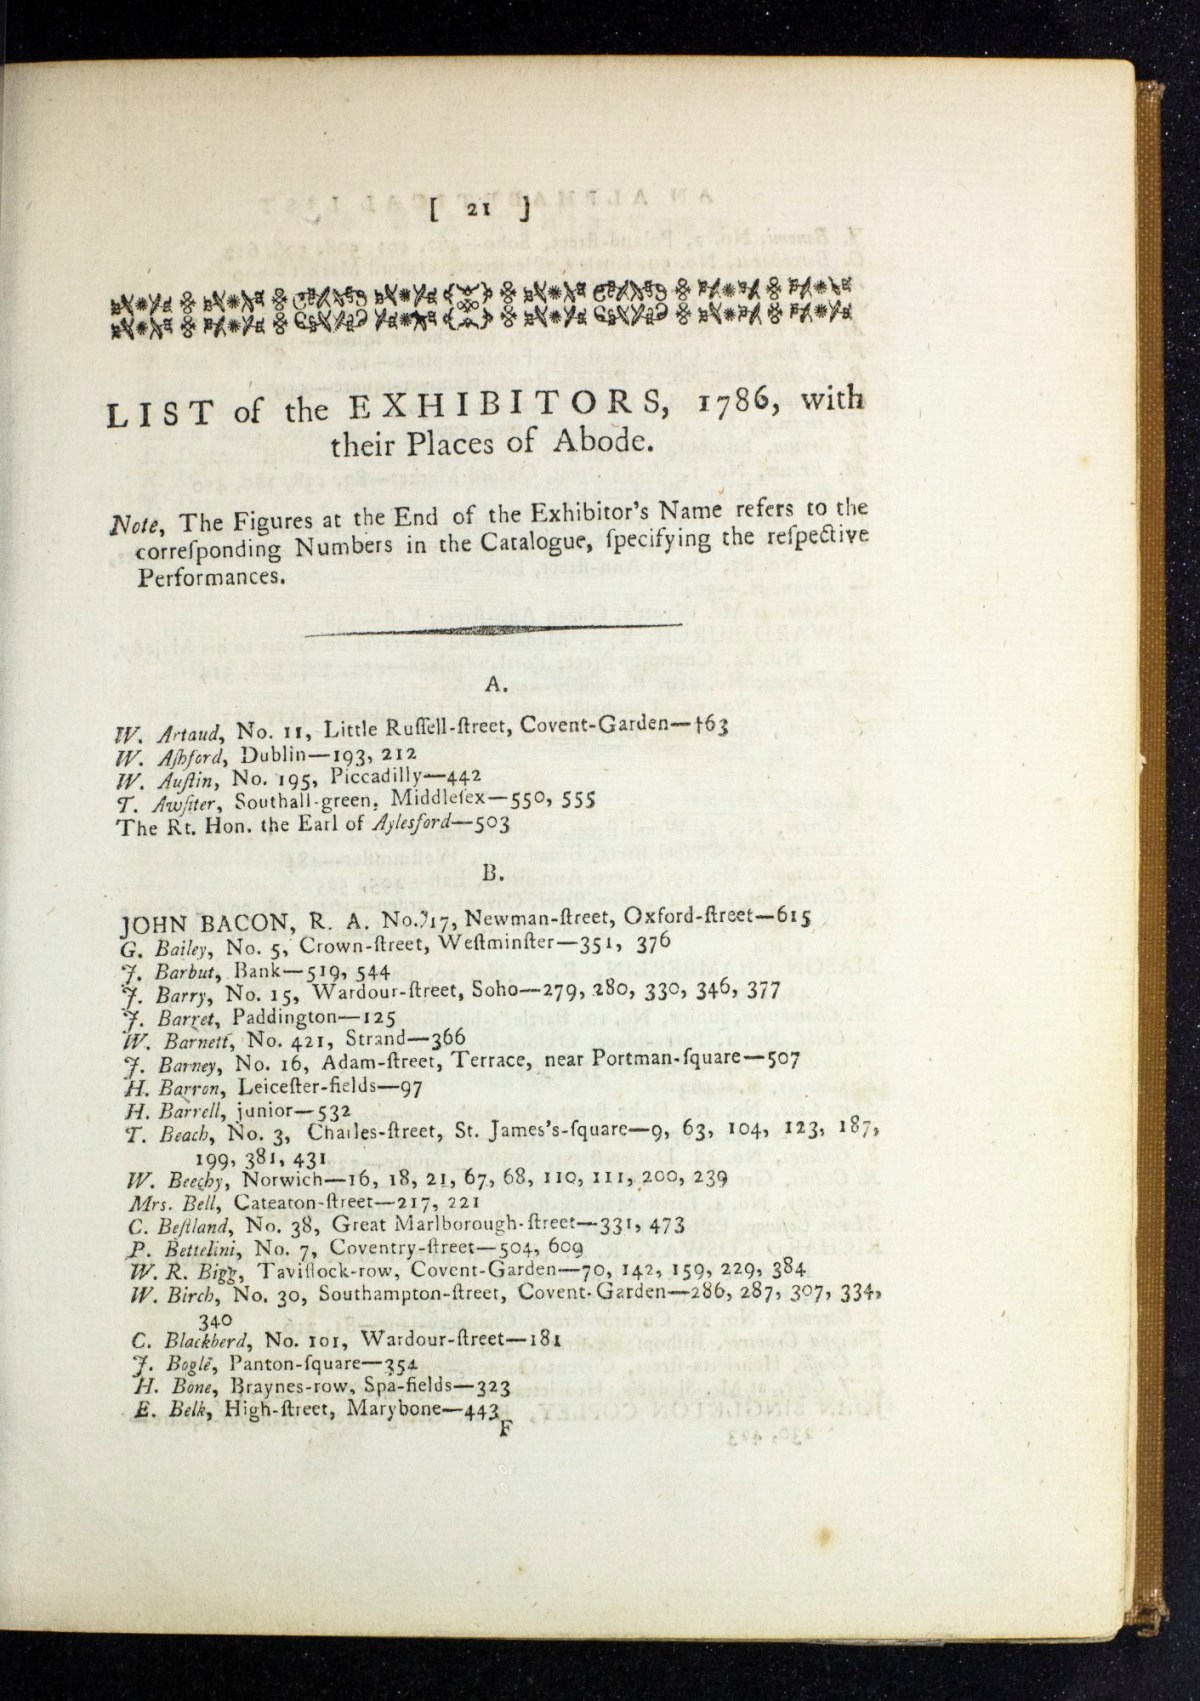 [ 21 ]
LIST of the EXHIBITORS, 1786, with
their Places of Abode.
Note, The Figures at the End of the Exhibitor's Name refers to the
correſponding Numbers in the Catalogue, ſpecifying the reſpective
Performances.
A.
W. Artaud, No. 11, Little Ruſſell-ſtreet, Covent-Garden—†63
W. Aſhford, Dublin—193, 212
W. Auſtin, No. 195, Piccadilly—442
T. Awſiter, Southall-green, Middleſex—550, 555
The Rt. Hon. the Earl of Aylesford—503
B.
JOHN BACON, R. A. No. 17, Newman-ſtreet, Oxford-ſtreet—615
G. Bailey, No. 5, Crown-ſtreet, Weſtminſter—351, 376
J. Barbut, Bank—519, 544
J. Barry, No. 15, Wardour-ſtreet, Soho—279, 280, 330, 346, 377
J. Barret, Paddington—125
W. Barnett, No. 421, Strand—366
J. Barney, No. 16, Adam-ſtreet, Terrace, near Portman-ſquare—507
H. Barron, Leiceſter-fields—97
H. Barrell, junior—532
T. Beach, No. 3, Charles-ſtreet, St. James's-ſquare—9, 63, 104, 123, 187,
199, 381, 431
W. Beechy, Norwich—16, 18, 21, 67, 68, 110, 111, 200, 239
Mrs. Bell, Cateaton-ſtreet—217, 221
C. Beſtland, No. 38, Great Marlborough-ſtreet—331, 473
P. Bettelini, No. 7, Coventry-ſtreet—504, 609
W. R. Bigg, Taviſtock-row, Covent-Garden—70, 142, 159, 229, 384
W. Birch, No. 30, Southampton-ſtreet, Covent-Garden—286, 287, 307, 334,
340
C. Blackberd, No. 101, Wardour-ſtreet—181
J. Bogle, Panton-ſquare—354
H. Bone, Braynes-row, Spa-fields—323
E. Belk, High-ſtreet, Marybone—443
F